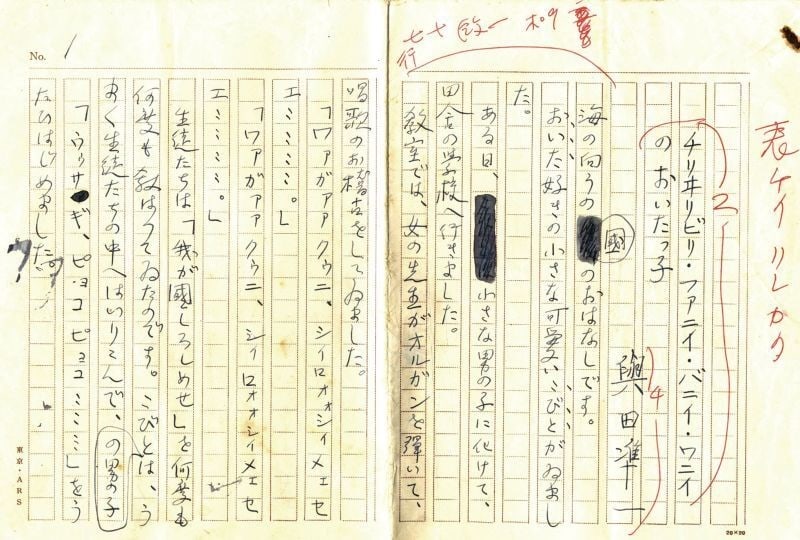 表ケイ
チリヰリビリ・ファニイ・バニイ・ワニイ
のおいたっ子
2
與田凖一
4
海の向うの國のおはなしです。
おいた好きの小さな可愛いこびとがゐまし
た。
ある日、小さな男の子に化けて、
田舎の学校へ行きました。
教室では、女の先生がオルガンを彈いて、
七十行
No. 1
唱歌のお稽古をしてゐました。
「ワァガァァ クゥニ、シィロォォシィメェセ
エミミミミ。」
「ワァガァァ クゥニ、シィロォォシィメェセ
エミミミミ。」
生徒たちは「我が國しろしめせ」を何度も
何度も教はつてゐたのです。こびとは、う
まく生徒たちの中へはいりこんで、の男の子
「ウゥサギ、ピョコ ピョコミミミ」をう
たひはじめました。
東京・ARS
20×20